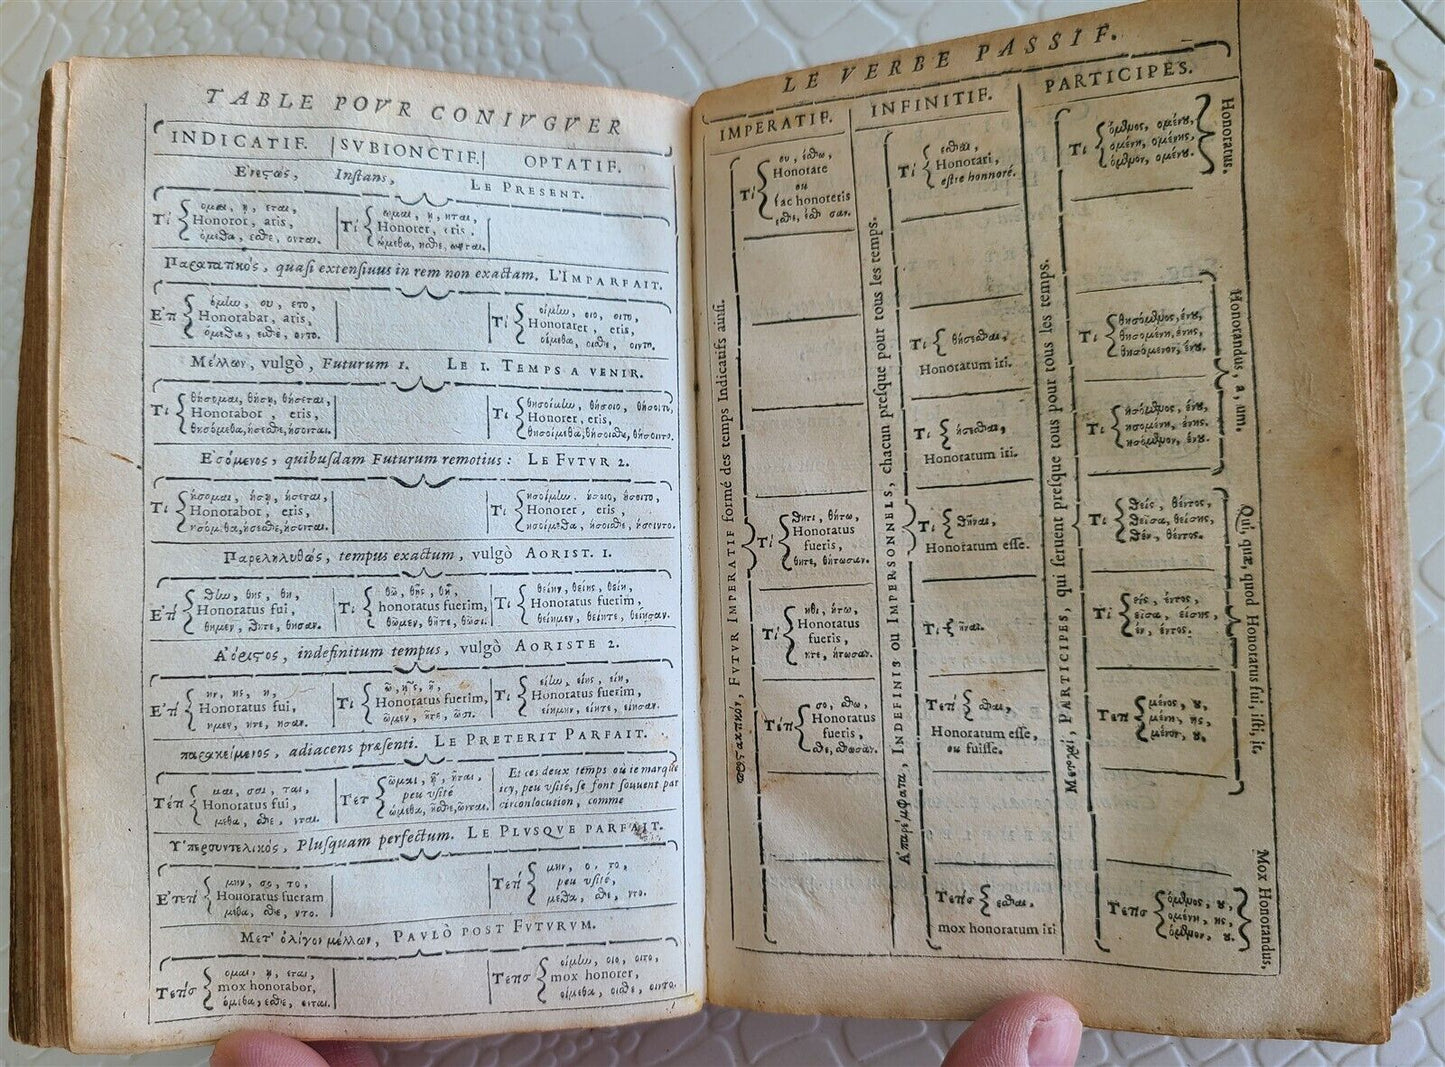 TABLE POVR CONIVGVER
INDICATIF. SVBIONCTIF. OPTATIF.
Instans, LE PRESENT.
Τί ομαι, ῃ, εται, Τί ωμαι, ῃ, ηται,
Honoror, aris, Honorer, eris,
όμεθα, εσθε, ονται. ώμεθα, ησθε, ωνται.
Παρατατικός, quasi extensiuus in rem non exactam. L'IMPARFAIT.
Ε'π όμίω, ου, ετο, Τί οίμίω, οιο, οιτο,
Honorabar, aris, Honorarer, eris,
όμεθα, εσθε, οντο. οίμεθα, οισθε, οιντο.
Μέλλων, vulgò, Futurum 1. LE 1. TEMPS A VENIR.
Τί θήσομαι, θήσῃ, θήσεται, Τί θησοίμίω, θήσοιο, θήσοιτο,
Honorabor, eris, Honorer, eris,
θησόμεθα, ήσεσθε, ήσονται. θησοίμεθα, θήσοισθε, θήσοιντο.
Εσόμενος, quibusdam Futurum remotius: LE FVTVR 2.
Τί ήσομαι, ήσῃ, ήσεται, Τί ησοίμίω, ήσοιο, ήσοιτο,
Honorabor, eris, Honorer, eris,
ησόμεθα, ήσεσθε, ήσονται. ησοίμεθα, ήσοισθε, ήσοιντο.
Παρεληλυθώς, tempus exactum, vulgò AORIST. 1.
Ε'πί θίω, θης, θη, Τί θῶ, θῇς, θῇ, Τί θείην, θείης, θείη,
Honoratus fui, honoratus fuerim, Honoratus fuerim,
θημεν, θητε, θησαν. θῶμεν, θῆτε, θῶσι. θείημεν, θείητε, θείησαν.
Α'όριστος, indefinitum tempus, vulgò AORISTE 2.
Ε'πί ην, ης, η, Τί ῶ, ῇς, ῇ, Τί είίω, είης, είη,
Honoratus fui, Honoratus fuerim, Honoratus fuerim,
ημεν, ητε, ησαν. ῶμεν, ῆτε, ῶσι. είημεν, είητε, είησαν.
παρακείμενος, adiacens præsenti. LE PRETERIT PARFAIT.
Τέπ μαι, σαι, ται, Τετ ῶμαι, ῇ, ῆται, Et ces deux temps où ie marque
Honoratus fui, peu vsité icy, peu vsité, se font souuent par
μεθα, σθε, νται. ώμεθα, ῆσθε, ῶνται. circonlocution, comme
Υ'περσυντελικός, Plusquam perfectum. LE PLVSQVE PARFAIT.
Ε'τεπί μην, σο, το, Τεπί μην, ο, το,
Honoratus fueram peu vsité,
μεθα, σθε, ντο. μεθα, σθε, ντο.
Μετ' ὀλίγον μέλλων, PAVLÒ POST FVTVRVM.
Τεπίσ ομαι, ῃ, εται, Τεπσ οίμίω, οιο, οιτο,
mox honorabor, mox honorer,
όμεθα, εσθε, ονται. οίμεθα, οισθε, οιντο.
LE VERBE PASSIF.
IMPERATIF. INFINITIF. PARTICIPES.
Προστακτικόν, FVTVR IMPERATIF formé des temps Indicatifs ausi.
Τί ου, έσθω,
Honorare
ou
fac honoreris
εσθε, έσθ σαν.
Τί θητι, θήτω,
Honoratus
fueris,
θητε, θήτωσαν.
Τί ηθι, ήτω,
Honoratus
fueris,
ητε, ήτωσαν.
Τέπ σο, σθω,
Honoratus
fueris,
σθε, σθωσαν.
Α'παρέμφατα, INDEFINIS OU IMPERSONNELS, chacun presque pour tous les temps.
Τί εσθαι,
Honorari,
estre honnoré.
Τί θήσεσθαι,
Honoratum iri.
Τί ήσεσθαι,
Honoratum iri.
Τί θῆναι,
Honoratum esse.
Τί ῆναι.
Τεπί σθαι,
Honoratum esse,
ou fuisse.
Τεπσ εσθαι,
mox honoratum iri
Μετοχαί, PARTICIPES, qui seruent presque tous pour tous les temps.
Τί όμενος, ομένου,
ομένη, ομένης,
όμενον, ομένου.
Honoratus,
Τί θησόμενος, ένου,
θησομένη, ένης,
θησόμενον, ένου.
Τί ησόμενος, ένου,
ησομένη, ένης.
ησόμενον, ένου.
Honorandus, a, um.
Τί θείς, θέντος,
θεῖσα, θείσης,
θέν, θέντος.
Τί είς, έντος,
εῖσα, είσης,
έν, έντος.
Τεπί μένος, ου,
μένη, ης,
μένον, ου.
Qui, quæ, quod Honoratus fui, isti, it.
Τεπσ όμενος, ου,
ομένη, ης,
όμενον, ου.
Mox Honorandus,